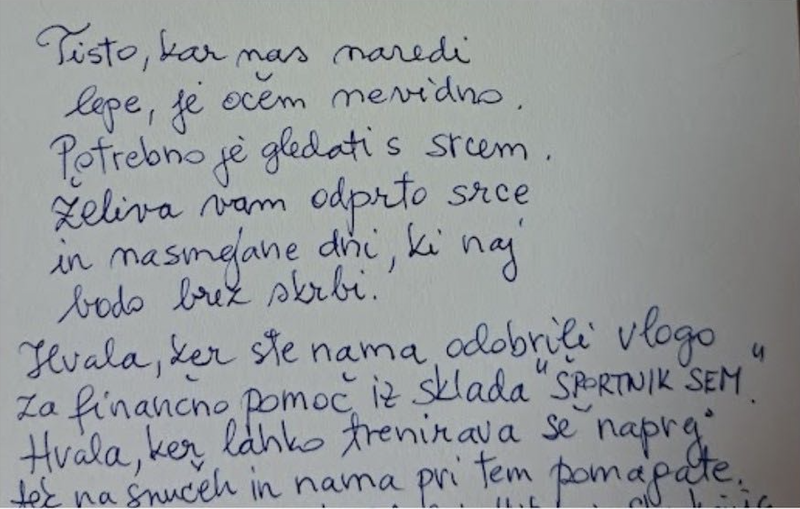 Tisto, kar nas naredi
lepe, je očem nevidno.
Potrebno je gledati s srcem.
Želiva vam odprto srce
in nasmejane dni, ki naj
bodo brez skrbi.
Hvala, ker ste nama odobrili vlogo
za finančno pomoč iz sklada "ŠPORTNIK SEM".
Hvala, ker lahko trenirava še naprej
tek na smučeh in nama pri tem pomagate.